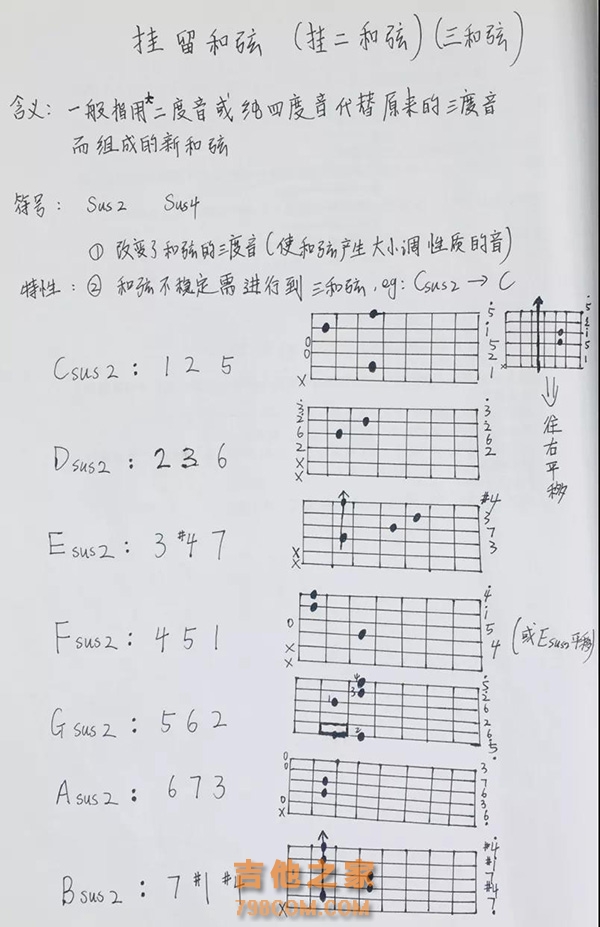 挂留和弦 (挂二和弦)(三和弦)
含义: 一般指用大二度音或纯四度音代替原来的三度音
而组成的新和弦
符号: Sus2 Sus4
① 改变了和弦的三度音(使和弦产生大小调性质的音)
特性: ② 和弦不稳定需进行到三和弦, eg: Csus2 → C
Csus2: 1 2 5
往右平移
Dsus2: 2 3 6
Esus2: 3 #4 7
Fsus2: 4 5 1
(或Esus2平移)
Gsus2: 5 6 2
Asus2: 6 7 3
Bsus2: 7 #1 #4
吉他之家
798COM.COM